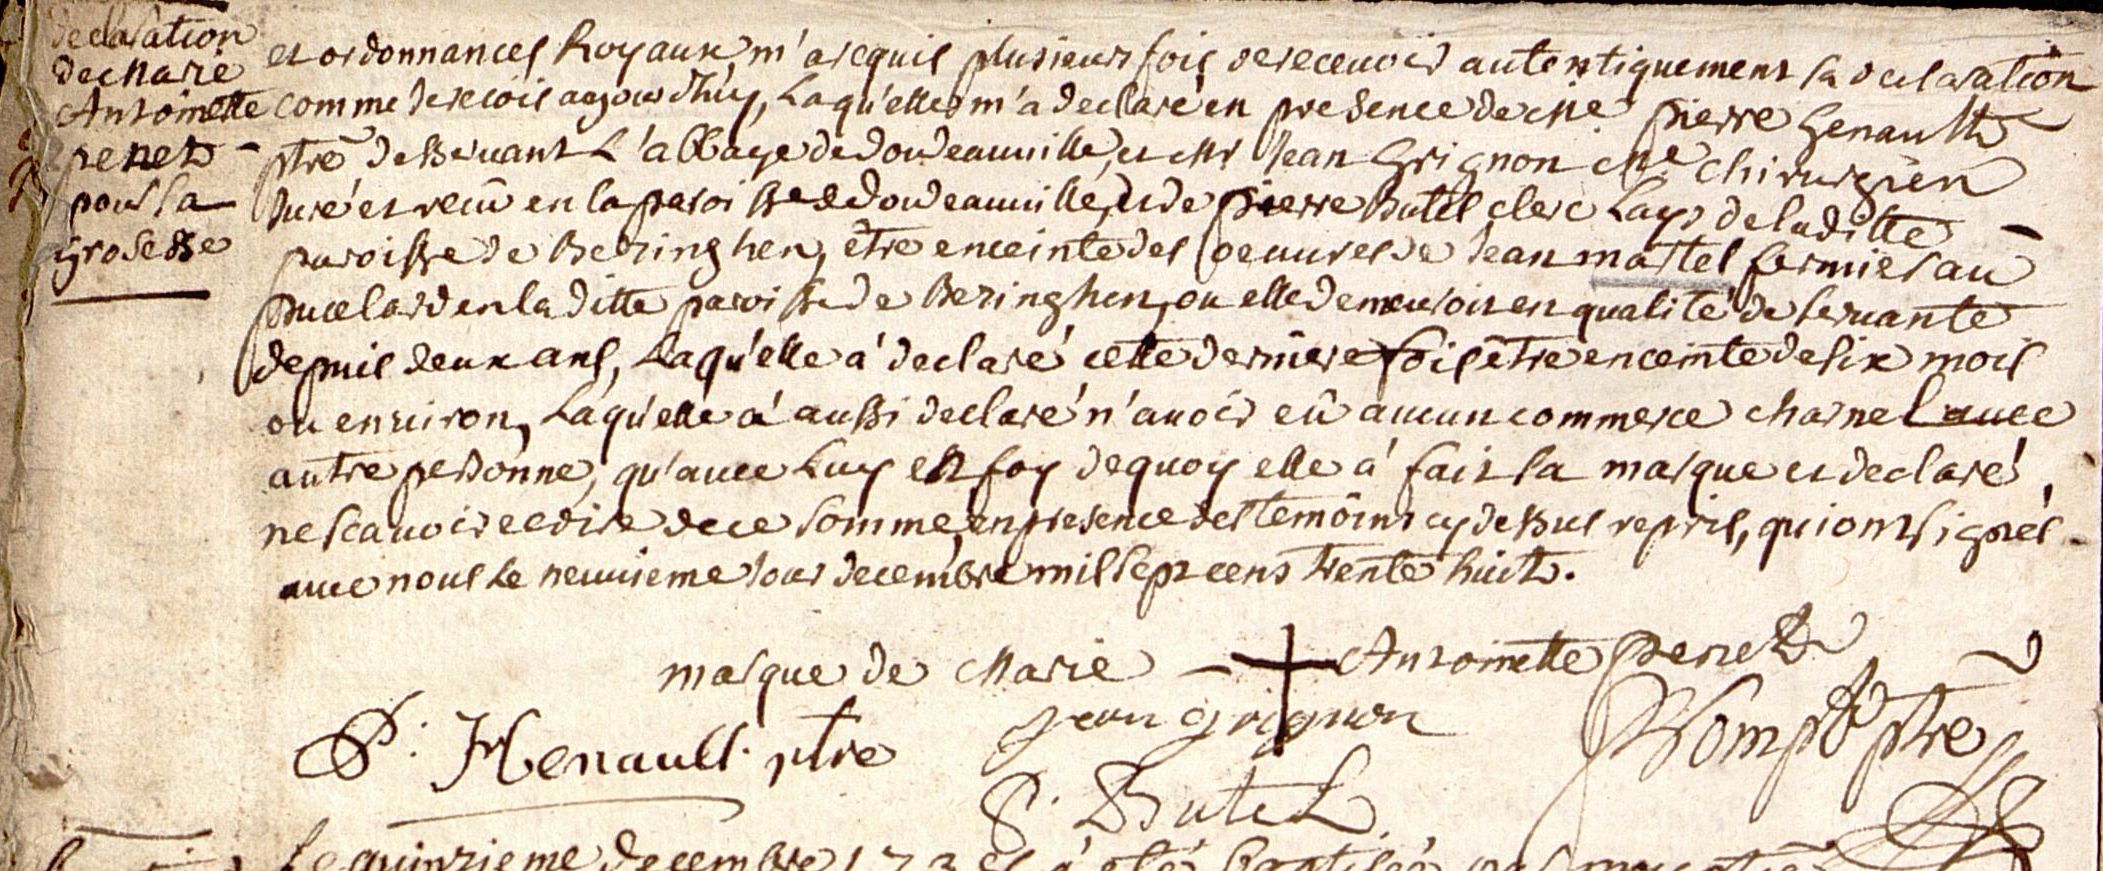 declaration
de Marie
Antoinette
penet -
pour sa
grosesse
et ordonnances Royaux, m'a requis plusieurs fois de recevoir autentiquement sa declaration
comme Je recois aujourd'huy, Laqu'elle m'a declaré en presence de Me pierre henault
ptre desservant L'abbaye de doudeauville, et Mr Jean Grignon Me chirurgien
Juré et recu en la paroisse de doudeauville, et de pierre Butel clerc Layc de laditte -
paroisse de Bezinghen, être enceinte des oeuvres de Jean martel fermier au
pucelard en la ditte paroisse de Bezinghen, ou elle demeuroit en qualité de servante
depuis deux ans, Laqu'elle à declaré cette derniere fois être enceinte de six mois
ou environ, Laqu'elle à aussi declaré n'avoir eû aucun commerce charnel avec
autre personne, qu'avec Luy en foy de quoy elle à fait sa marque et declaré
ne scavoir ecrire de ce somme, en presence des temoins cy dessus repris, qui ont signés
avec nous Le neuvieme Jour decembre mil sept cens trente huit.
marque de Marie - + Antoinette penet
P. Henault ptre
jean grignon
P. Butel
Le quinzieme decembre 1738 à été baptisée par